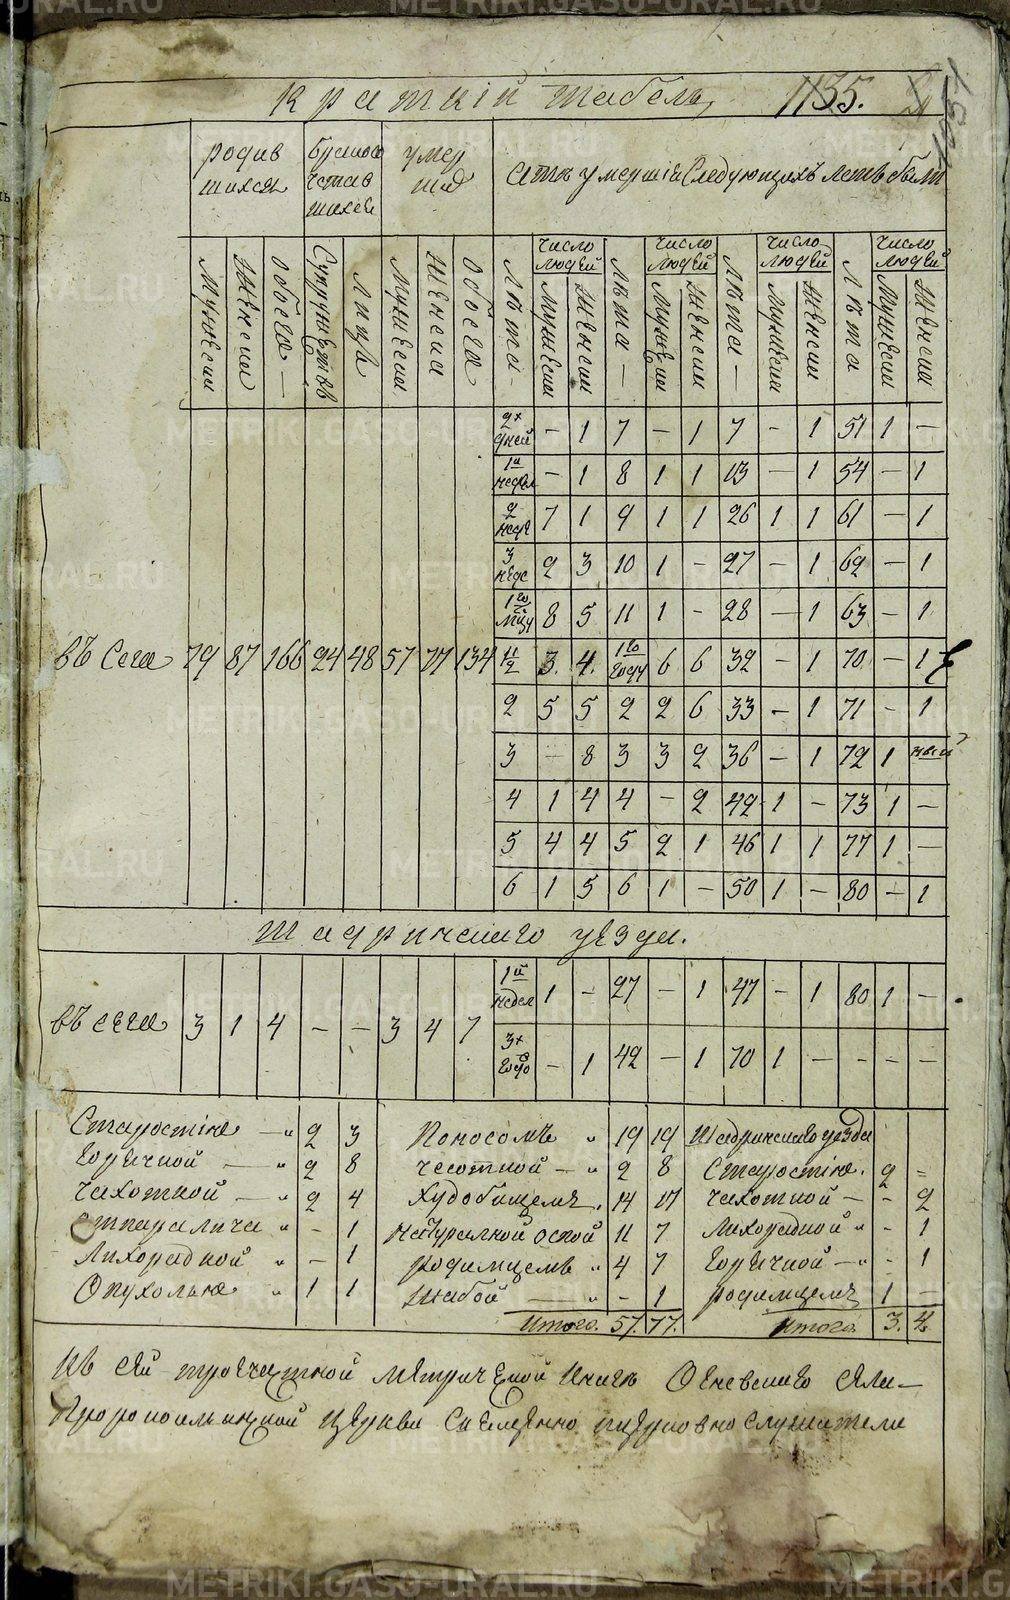 краткій табель, 1135.
родив
шихся
бракосо
четав
шихся
умер
шія
ѣтѣ умершіе Следующихъ летъ были
Мужеска
Женска
Обоега
Супружествъ
Лица
Мужеска
Женска
Обоега
Лѣта
число
людей
Мужеска
Женска
Лѣта
число
людей
Мужеска
Женска
Лѣта
число
людей
Мужеска
Женска
Лѣта
число
людей
Мужеска
Женска
2х дней – 1 7 – 1 7 – 1 51 1 –
1й недел – 1 8 1 1 13 – 1 54 – 1
2 неде 7 1 9 1 1 26 1 1 61 – 1
3 неде 2 3 10 1 – 27 – 1 62 – 1
1го мцу 8 5 11 1 – 28 – 1 63 – 1
въ Сега 79 87 166 24 48 57 77 134 1½ 3. 4. 1го году 6 6 32 – 1 70 – 1
2 5 5 2 2 6 33 – 1 71 – 1
3 – 8 3 3 2 36 – 1 72 1
4 1 4 4 – 2 42 1 – 73 1 –
5 4 4 5 2 1 46 1 1 77 1 –
6 1 5 6 1 – 50 1 – 80 – 1
Шадринскаго уезда.
въ сега 3 1 4 – – 3 4 7 1й недел 1 – 27 – 1 47 – 1 80 1 –
3х годо – 1 42 – 1 70 1 – – – –
Старостію – „ 2 3 Поносомъ „ 19 19 Шадринскаго уезда
Горячкой – „ 2 8 чесоткой – „ 2 8 Старостію. 2 =
Чахоткой – „ 2 4 Худобищемъ. 14 17 чахоткой – – 2
Отпаралича „ – 1 Натуралной оспой 11 7 Лихорадкой „ – 1
Лихорадкой „ – 1 родимцемъ „ 4 7 Горячкой – „ – 1
Опухолью „ 1 1 Жабой – „ – 1 родимцемъ 1 –
Итого. 57. 77. Итого 3. 4.
Къ сей троечастной метрической книге Окневскаго села
Пророкоильинской церкви Священно церковнослужители
METRIKI.GASO-URAL.RU